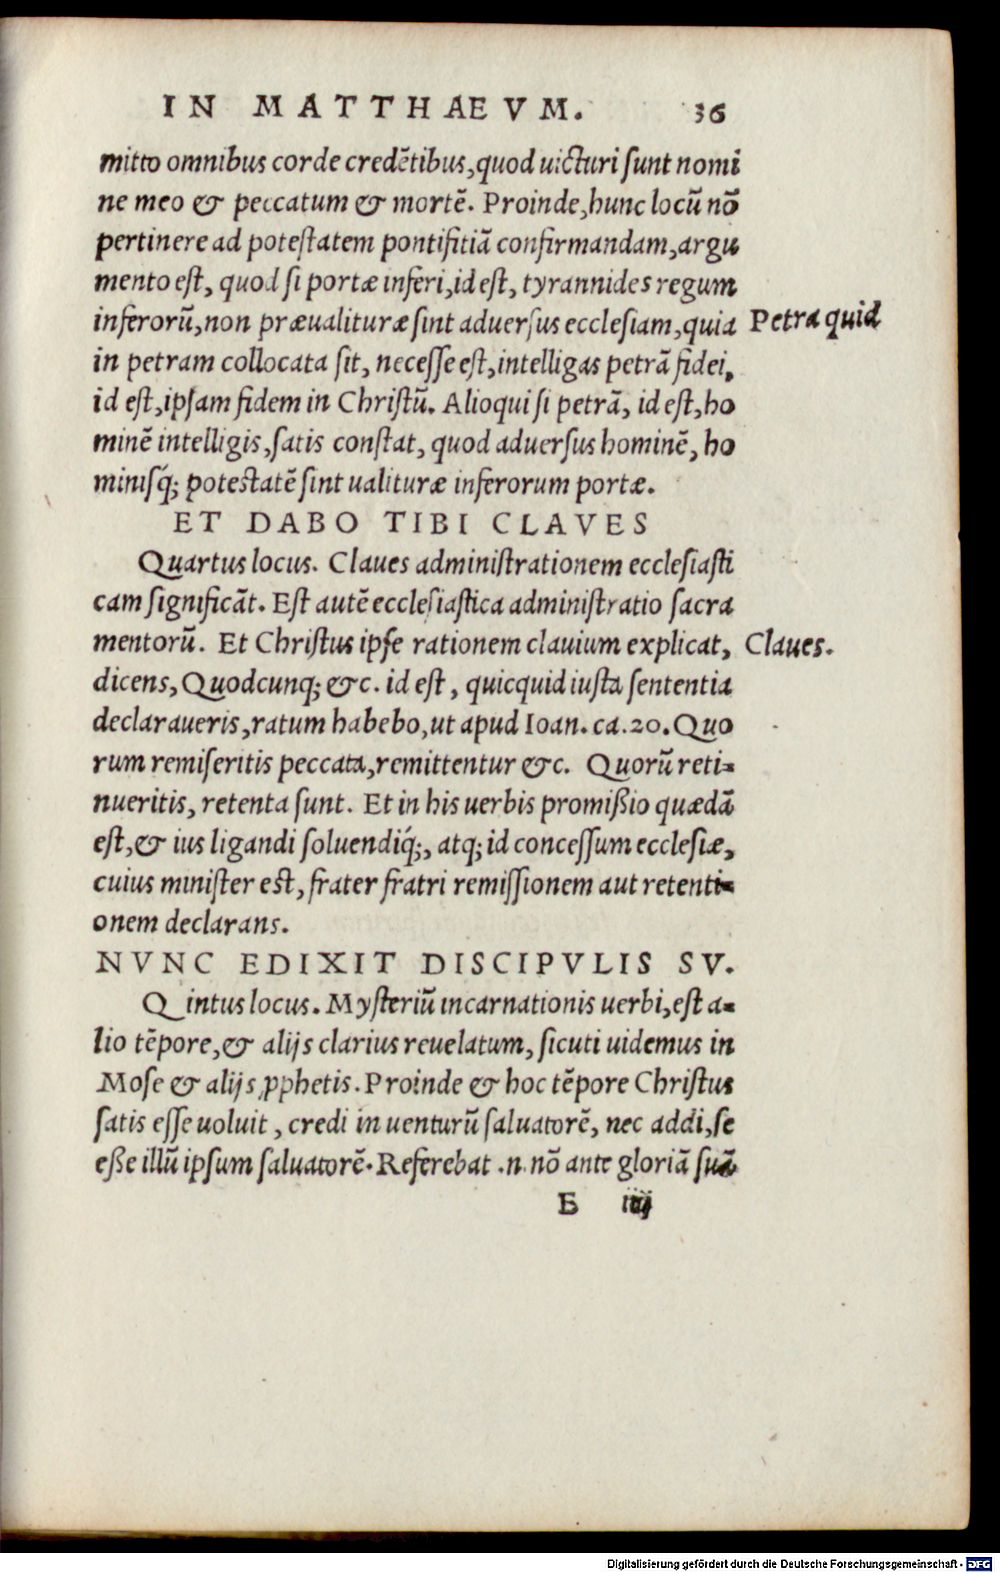 IN MATTHAEVM. 36
mitto omnibus corde credētibus, quod uicturi sunt nomi
ne meo & peccatum & mortē. Proinde, hunc locū nō
pertinere ad potestatem pontifitiā confirmandam, argu
mento est, quod si portæ inferi, id est, tyrannides regum
inferorū, non præualituræ sint aduersus ecclesiam, quia
Petra quid
in petram collocata sit, necesse est, intelligas petrā fidei,
id est, ipsam fidem in Christū. Alioqui si petrā, id est, ho
minē intelligis, satis constat, quod aduersus hominē, ho
minisq́; potestatē sint ualituræ inferorum portæ.
ET DABO TIBI CLAVES
Quartus locus. Claues administrationem ecclesiasti
cam significāt. Est autē ecclesiastica administratio sacra
mentorū. Et Christus ipse rationem clauium explicat,
Claues.
dicens, Quodcunq; &c. id est, quicquid iusta sententia
declaraueris, ratum habebo, ut apud Ioan. ca. 20. Quo
rum remiseritis peccata, remittentur &c. Quorū reti-
nueritis, retenta sunt. Et in his uerbis promißio quædā
est, & ius ligandi soluendiq́;, atq; id concessum ecclesiæ,
cuius minister est, frater fratri remissionem aut retenti-
onem declarans.
NVNC EDIXIT DISCIPVLIS SV.
Quintus locus. Mysteriū incarnationis uerbi, est a-
lio tēpore, & alijs clarius reuelatum, sicuti uidemus in
Mose & alijs ꝓphetis. Proinde & hoc tēpore Christus
satis esse uoluit, credi in uenturū saluatorē, nec addi, se
eße illū ipsum saluatorē. Referebat .n. nō ante gloriā suā
E iiij
Digitalisierung gefördert durch die Deutsche Forschungsgemeinschaft - DFG